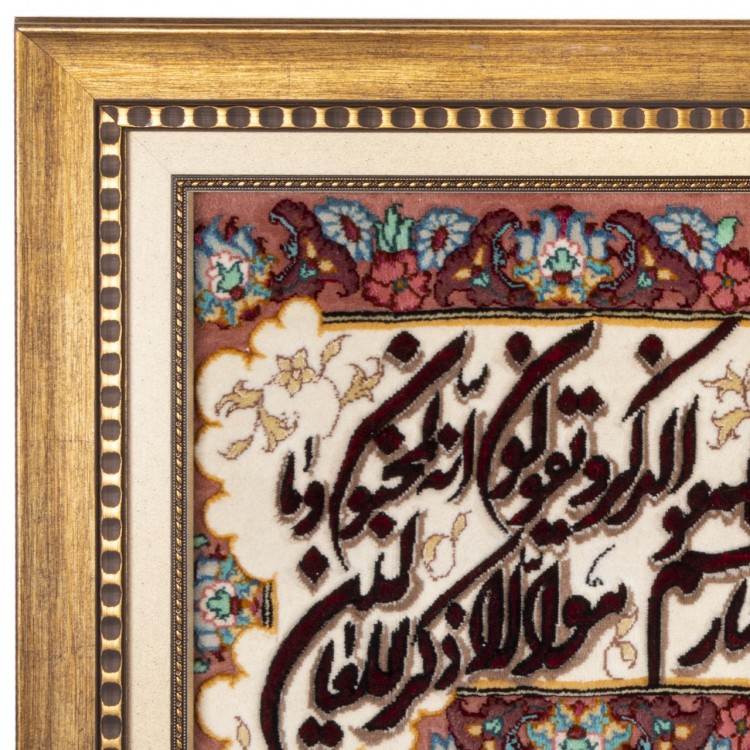 سمعوا الذكر و يقولون انه لمجنون و ما
هو الا ذكر للعالمين